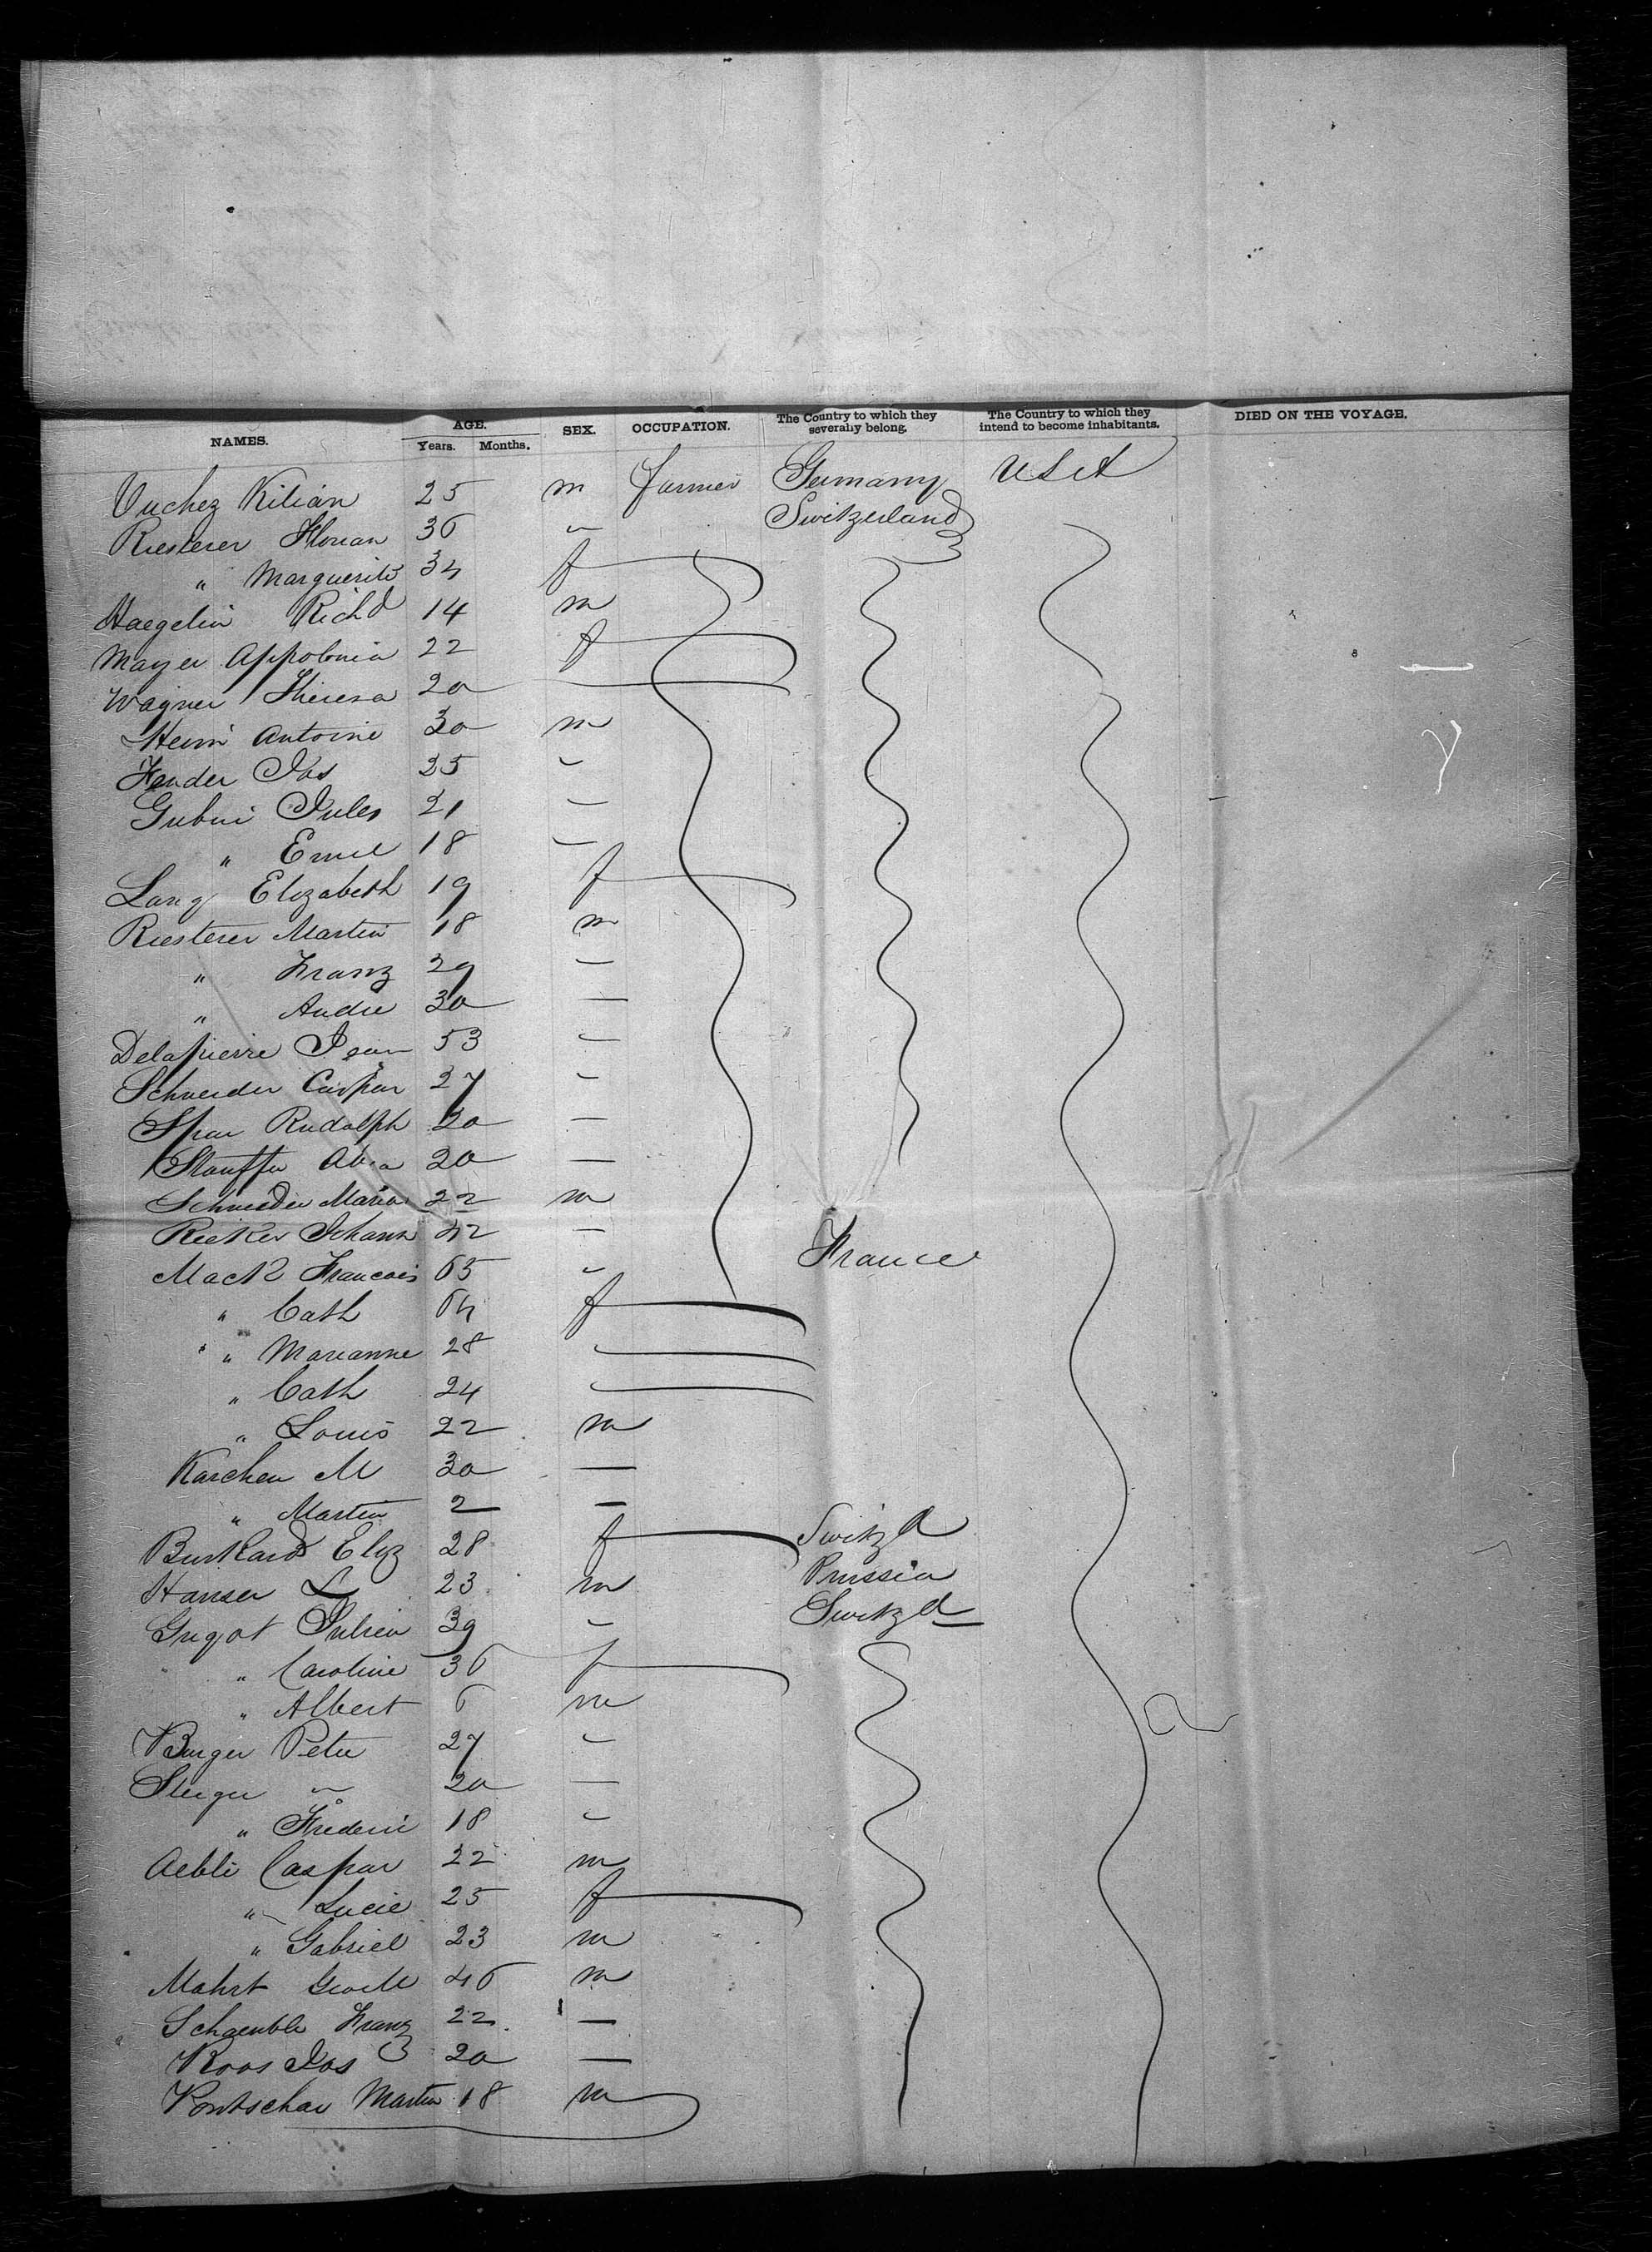 NAMES. AGE. Years. Months. SEX. OCCUPATION. The Country to which they severally belong. The Country to which they intend to become inhabitants. DIED ON THE VOYAGE.
Vuchez Kilian 25 m farmer Germany USA
Riesterer Florian 36 " Switzerland
" Marguerite 34 f
Haegelin Richd 14 m
Mayer Appolonia 22 f
Wagner Theresa 20
Henri Antoine 30 m
Fender Jos 25 "
Gubini Jules 21 "
" Emil 18 "
Lang Elizabeth 19 f
Riesterer Martin 18 m
" Franz 29 "
" Andre 30 "
Delapierre Jean 53 "
Schneider Caspar 27 "
Rudolph 20 "
Stauffer 20 "
Schneider Maria 22 m
Rieker Johann 42 "
Mack Francois 65 " France
" Cath 64 f
" Marianne 28 "
" Cath 24 "
" Louis 22 m
Karcher M 30 "
" Martin 2 "
Burkard Eliz 28 f Switzd
Hanser L 23 m Prussia
Gugot Julien 39 " Switzd
" Caroline 36 f
" Albert 6 m
Burger Peter 27 "
Steiger " 20 "
" Frederic 18 "
Aebli Caspar 22 m
" Lucie 25 f
" Gabriel 23 m
Mahrt 46 m
Schaeuble Franz 22 "
Roos Jos 20 "
Martin 18 m